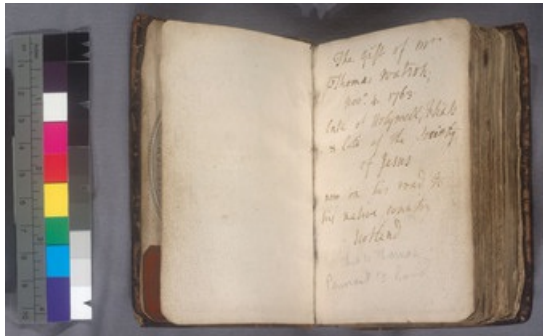 The gift of Mr
Thomas Watson,
Novr. 4. 1763
late of Holywell,
& late of the Society
of Jesus
now on his road to
his native country
Scotland